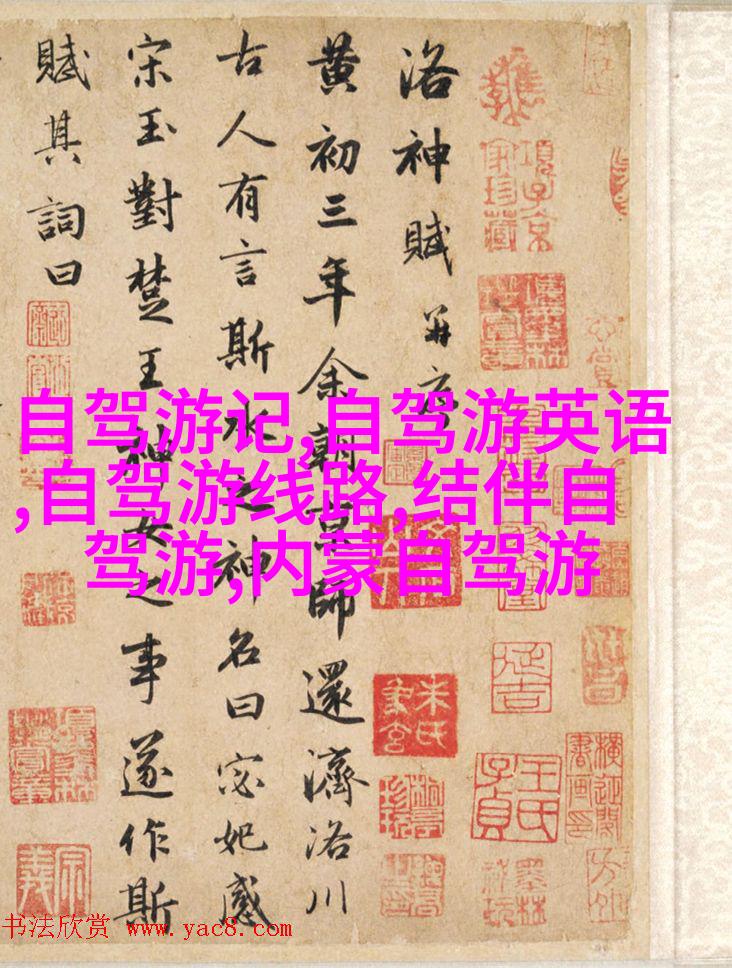 洛神賦并序
黄初三年余朝京師還濟洛川
古人有言斯水之神名曰宓妃感
宋玉對楚王神女之事遂作斯
賦其詞曰
項子京
家珍藏
朱氏
象玄
王氏
子貞
自驾游记,自驾游英语
,自驾游线路,结伴自
驾游,内蒙自驾游
书法欣赏 www.yac8.com